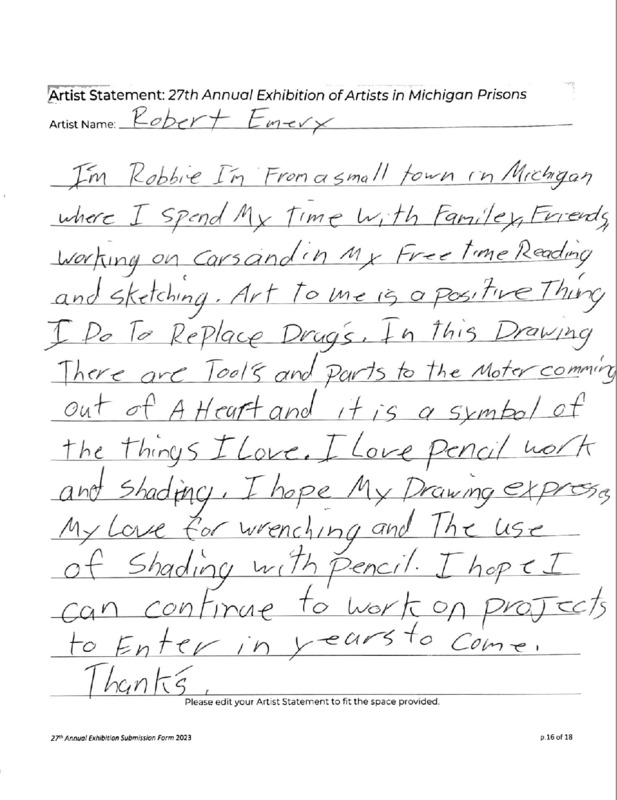 Artist Statement: 27th Annual Exhibition of Artists in Michigan Prisons
Artist Name: Robert Emery
I'm Robbie I'm From a small town in Michigan
where I spend My Time With Familey, Friends,
working on cars and in My Free time Reading
and sketching. Art To me is a positive Thing
I Do To Replace Drug's. In this Drawing
There are Tool's and parts to the Moter comming
out of A Heart and it is a symbol of
the things I Love. I Love pencil work
and shading. I hope My Drawing express
My Love for wrenching and The use
of Shading with pencil. I hope I
can continue to work on projects
to Enter in years to Come.
Thank's.
Please edit your Artist Statement to fit the space provided.
27th Annual Exhibition Submission Form 2023
p.16 of 18